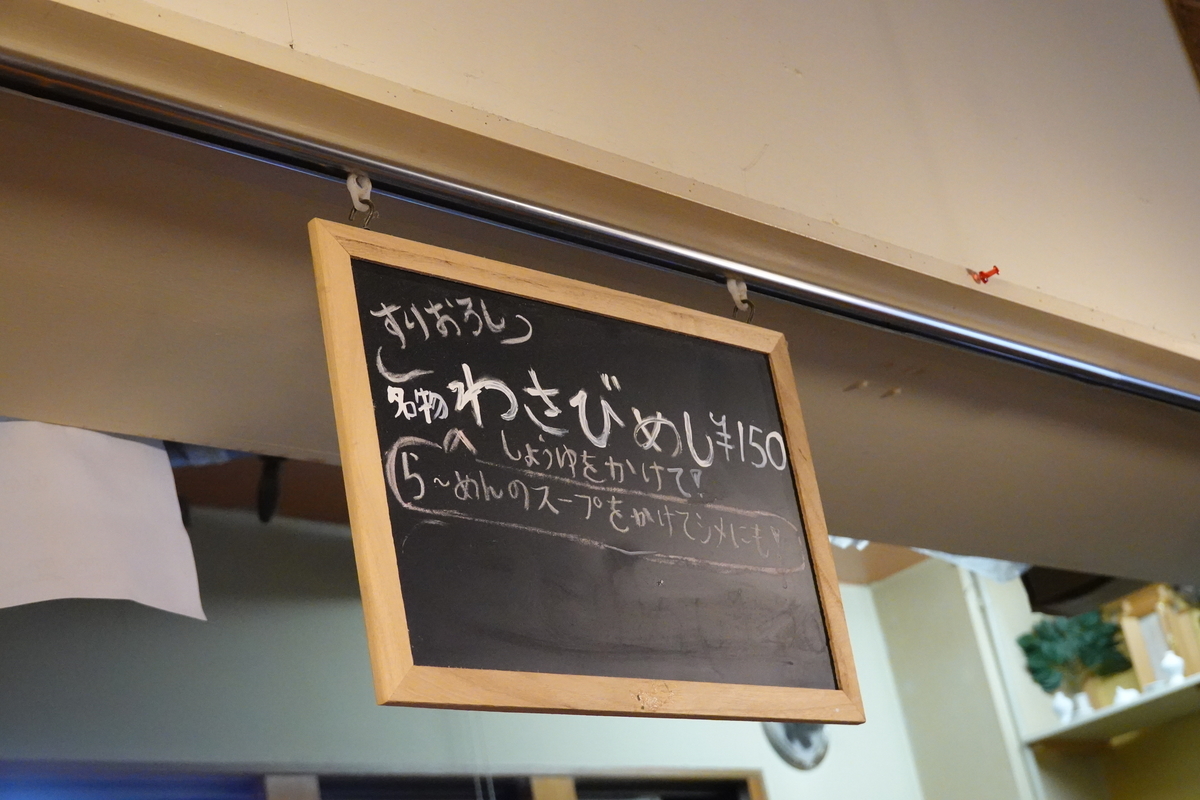 すりおろし
名物わさびめし¥150
しょうゆをかけて!
ら～めんのスープをかけてシメにも!